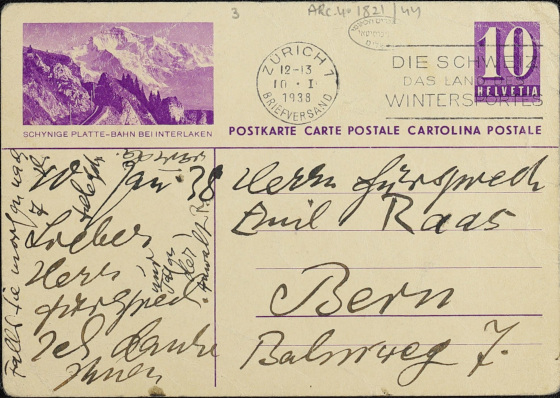 3
ARC. 4° 1821/44
ZÜRICH 7
12-13
10 · I
1938
BRIEFVERSAND
DIE SCHWEIZ
DAS LAND
WINTERSPORTES
10
HELVETIA
SCHYNIGE PLATTE-BAHN BEI INTERLAKEN
POSTKARTE CARTE POSTALE CARTOLINA POSTALE
Herrn Fürsprech
Emil Raas
Bern
Balmweg 7.
10 Jan 38
Lieber
Herr
Fürsprech
Ich danke
Ihnen
Falls Sie morgen